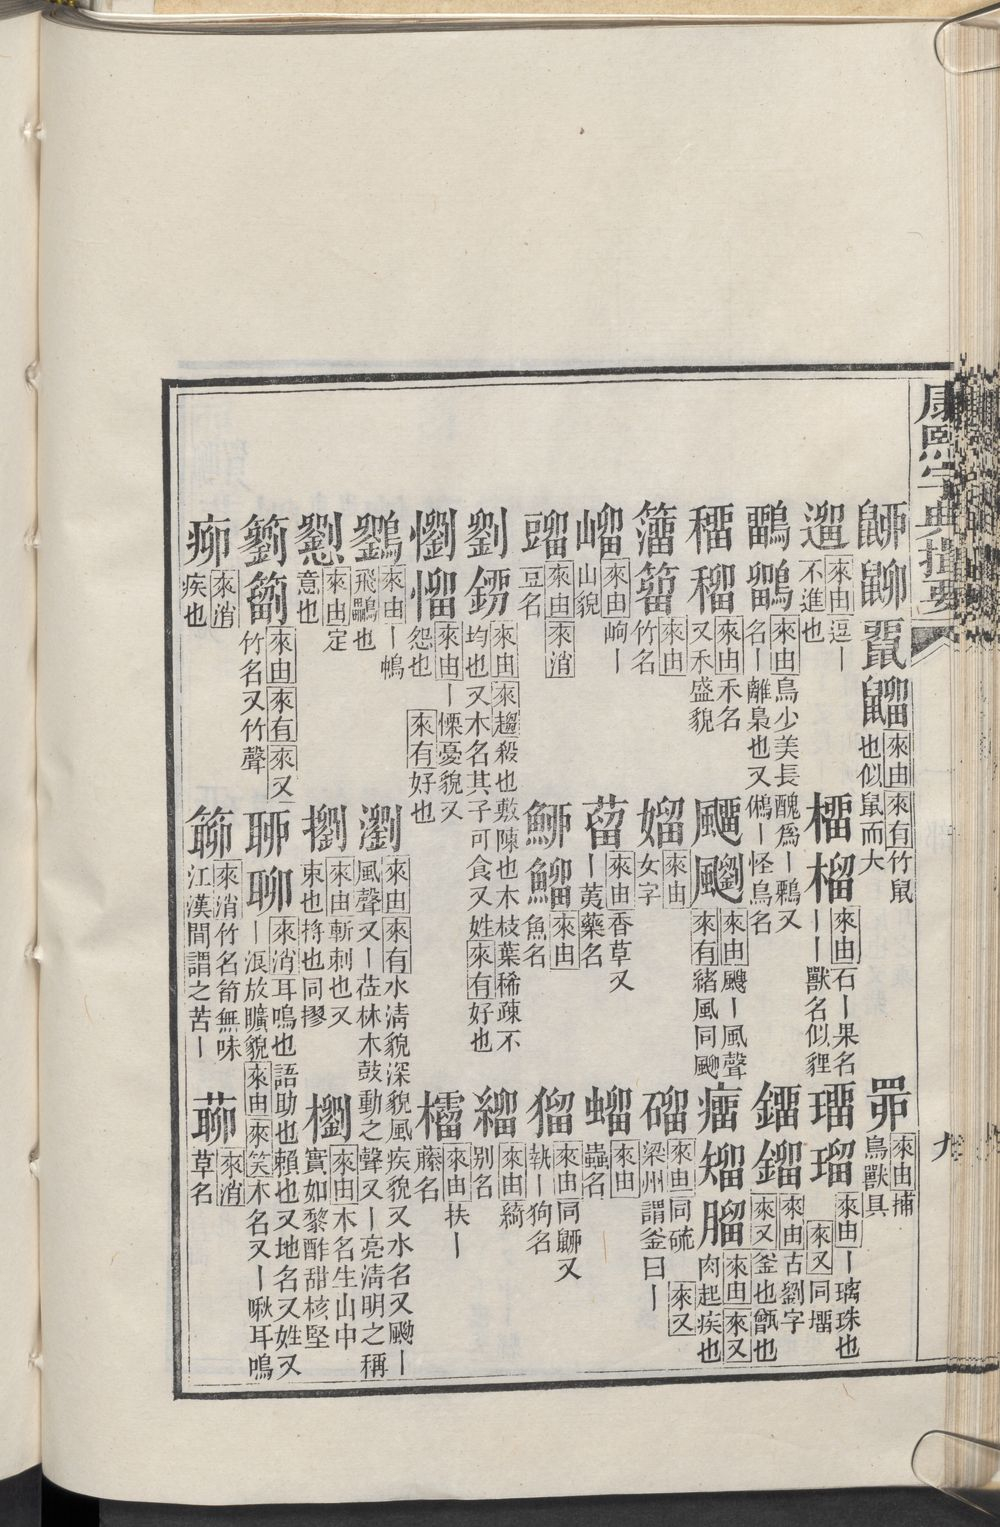 康熙字典撮要
九
鼺 來由 來有 竹鼠也似鼠而大
罶 來由 捕鳥獸具
遛 來由 逗丨不進也
橊 榴 來由 石丨果名丨丨獸名似貍
瑠 瑠 來由 丨璃珠也 來又 同塯
鶹 來由 鳥少美長醜爲丨鶹又名丨離梟也又鵂丨怪鳥名
鐂 鎦 來由 古劉字 來又 釜也甑也
稲 稤 來由 禾名又禾盛貌
飅 來由 飀丨風聲 來有 緒風同飀
瘤 腬 腬 來由 來又 肉起疾也
籓 籀 來由 竹名
媹 來由 女字
磂 來由 同硫 來又 梁州謂釜曰丨
嵧 來由 峋丨山貌
蒥 來由 香草又丨荑藥名
蟉 來由 蟲名
䝀 來由 來消 豆名
鰡 來由 魚名
猶 來由 同鼺又執丨狗名
劉 鎦 來由 來趨 殺也敷陳也木枝葉稀疎不均也又木名其子可食又姓 來有 好也
綹 來由 綺别名
懰 慴 來由 丨慄憂貌又怨也 來有 好也
櫺 來由 扶丨藤名
鷚 來由 丨鵃飛鸓也
瀏 來由 來有 水淸貌深貌風疾貌又水名又飀丨風聲又丨莅林木鼓動之聲又丨亮淸明之稱
懰 來由 定意也
摎 來由 斬刺也又束也捋也同摎
榴 來由 木名生山中實如黎酢甜核堅
籀 來由 來有 來又 竹名又竹聲
聊 聊 來消 耳鳴也語助也賴也又地名又姓又丨浪放曠貌 來由 來笑 木名又丨啾耳鳴
㾖 來消 疾也
䉼 來消 竹名筍無味江漢間謂之苦丨
䕩 來消 草名